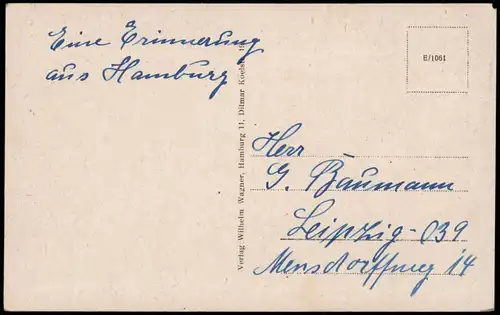 Eine Erinnerung
aus Hamburg
Verlag Wilhelm Wagner, Hamburg 11, Ditmar Koel
E/1061
Herr
G. Baumann
Leipzig-O39
Mensdorffweg 14